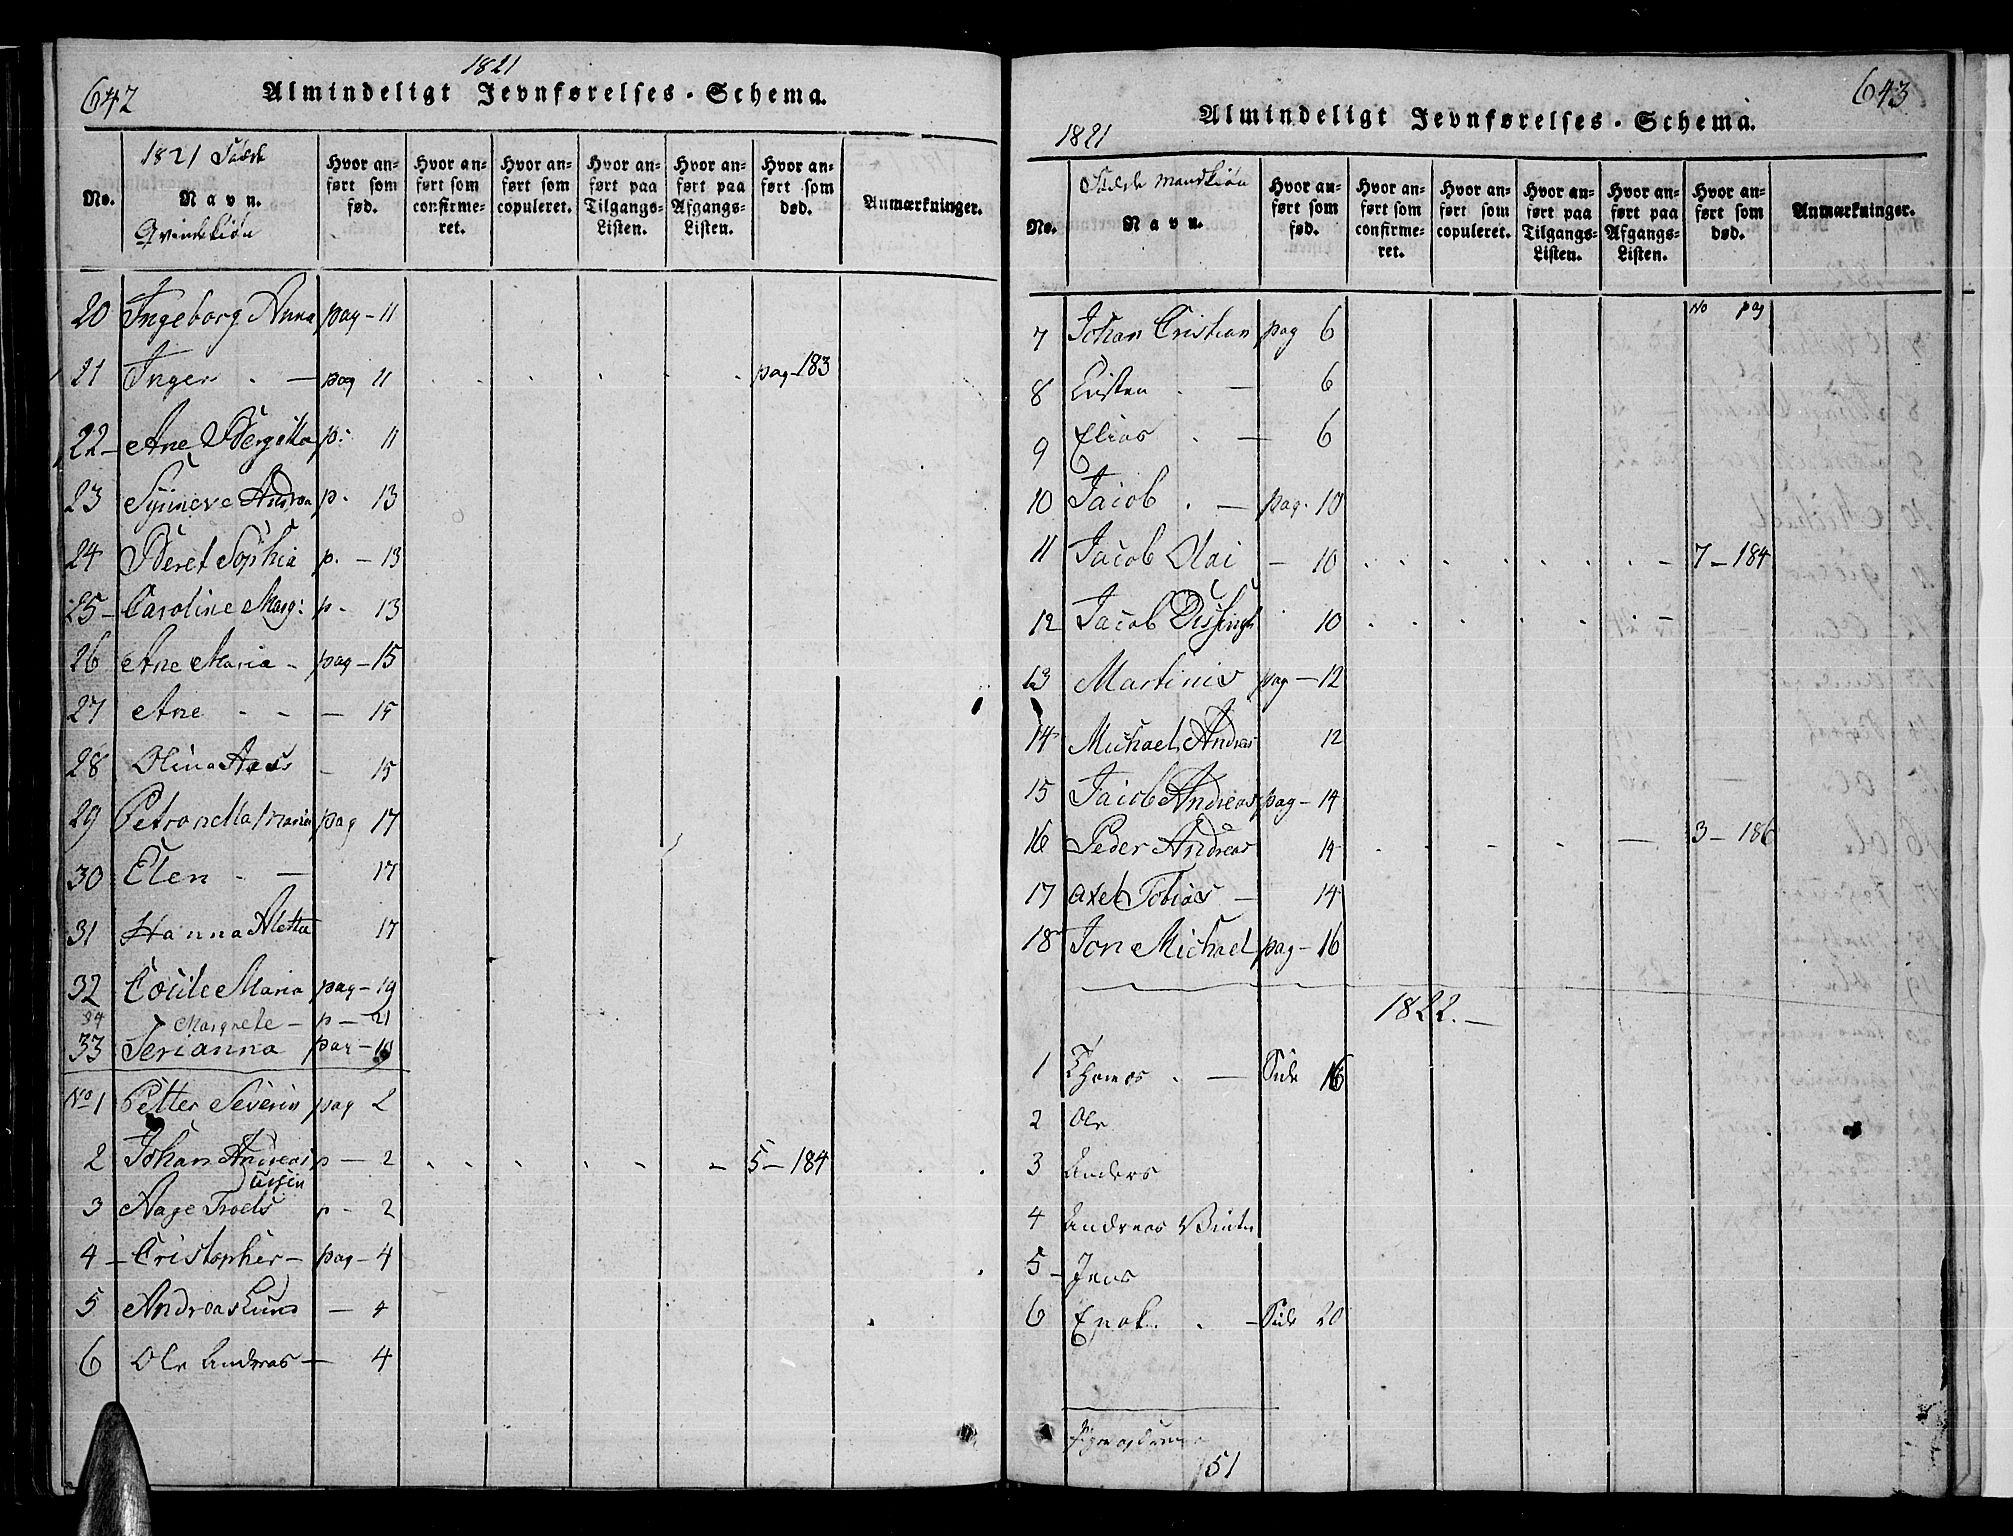 1821
642 Almindeligt Jevnførelses-Schema.
No. 1821 Fødde Navn. Qvindekiøn
Hvor anført som fød.
Hvor anført som confirmeret.
Hvor anført som copuleret.
Hvor anført paa Tilgangs-Listen.
Hvor anført paa Afgangs-Listen.
Hvor anført som død.
Anmærkninger.
20 Ingeborg Anna pag - 11
21 Inger . - pag 11 . . . . . pag - 183
22 - Ane Bergitta p: 11
23 Synneve Andrea p. 13
24 Beret Sophia p. - 13
25 - Caroline Marg: p - 13
26 Ane Maria - pag - 15
27 Ane - - - 15
28 Olina - 15
29 Petronella Maria pag 17
30 Elen - - 17
31 Hanna Aletta 17
32 Cecile Maria pag - 19
34 Margrete - p - 21
33 Serianna pag - 19
No 1 Petter Severin pag 2
2 Johan Andreas p - 2 . . . . . - 5 - 184
3 Aage Troels p - 2
4 - Cristopher - pag - 4
5 Andreas Lund - 4
6 Ole Andreas - 4
643
Almindeligt Jevnførelses-Schema.
1821
No. Fødde Mandkiøn Navn.
Hvor anført som fød.
Hvor anført som confirmeret.
Hvor anført som copuleret.
Hvor anført paa Tilgangs-Listen.
Hvor anført paa Afgangs-Listen.
Hvor anført som død.
Anmærkninger.
No pag
7 Johan Cristian pag 6
8 Cristen . - 6
9 Elias . - 6
10 Jacob . - pag. 10
11 Jacob Olai - 10 . . . . . . - 7 - 184
12 Jacob 10 . . . . . -
13 Martinis pag - 12
14 Michael Andreas 12
15 Jacob Andreas pag - 14
16 Peder Andreas 14 . . . . - 3 - 186
17 Axel Tobias - 14
18 Jon Michael pag - 16
1822. -
1 Thomas . - Side 16
2 Ole
3 Anders
4 Andreas Winter
5 - Jens
6 Enok . - Side 20
151